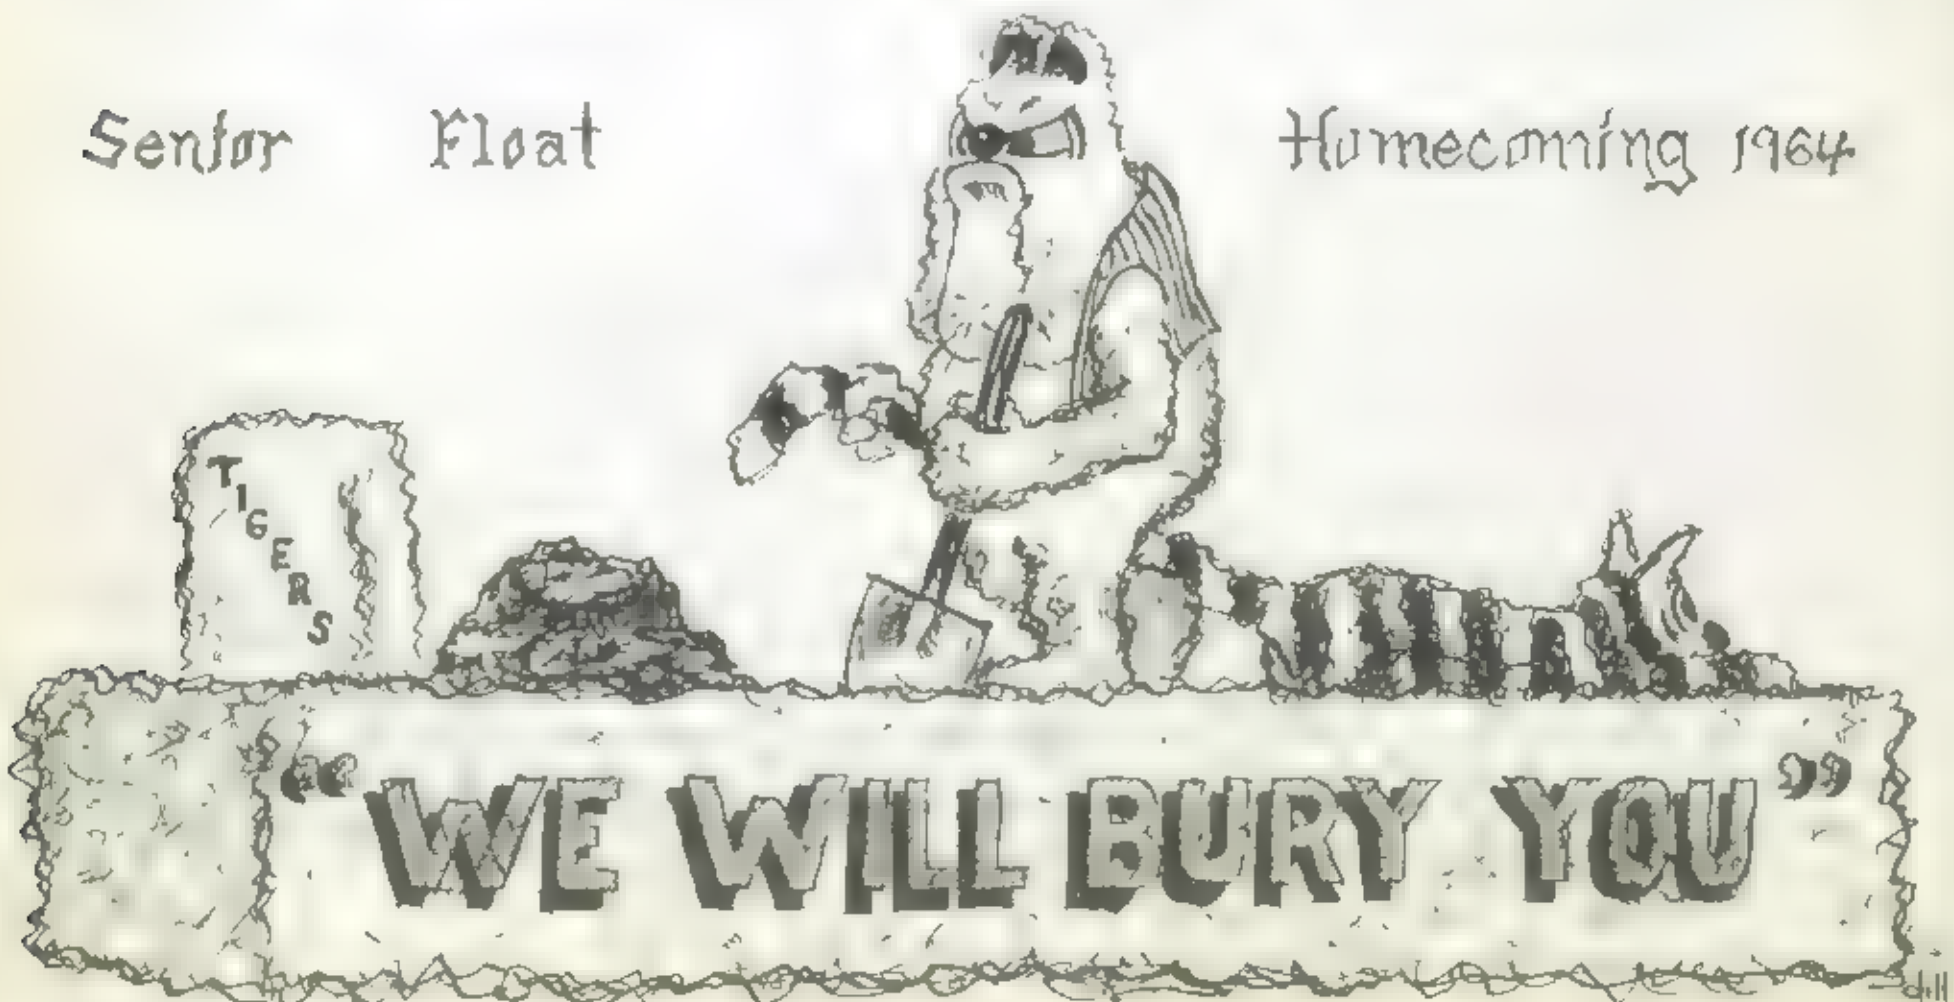 Senior Float Homecoming 1964
TIGERS
"WE WILL BURY YOU"